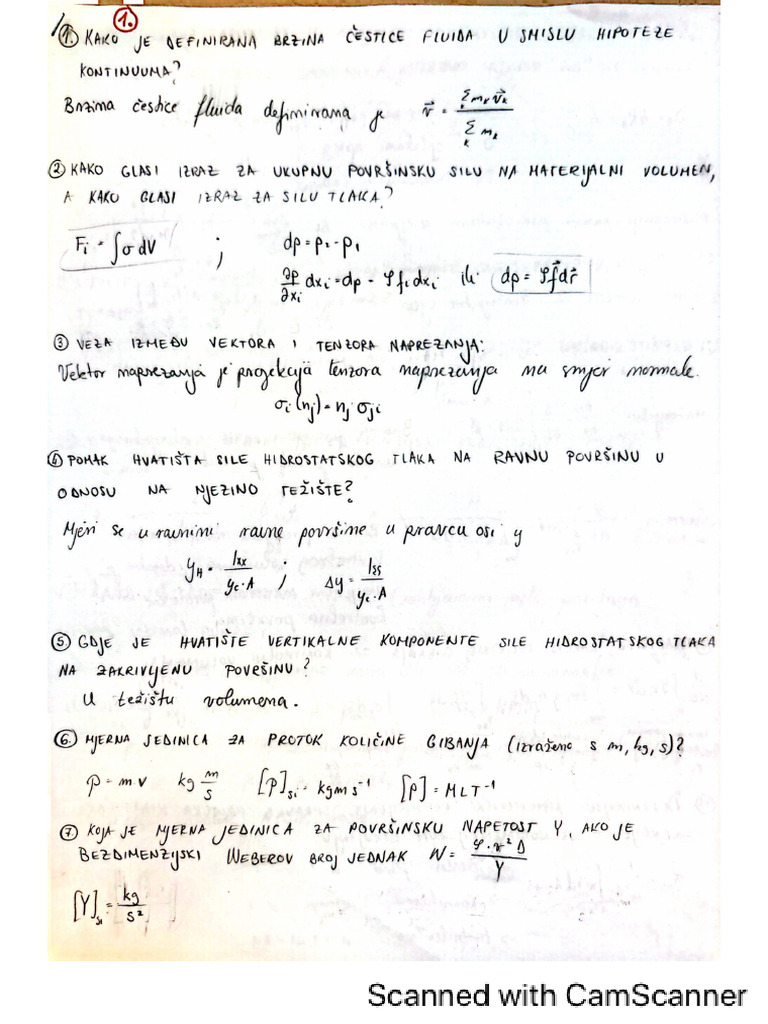 1.
① KAKO JE DEFINIRANA BRZINA ČESTICE FLUIDA U SMISLU HIPOTEZE
KONTINUUMA?
Brzina čestice fluida definirana je v⃗ = Σₖ mₖ v⃗ₖ / Σₖ mₖ
② KAKO GLASI IZRAZ ZA UKUPNU POVRŠINSKU SILU NA MATERIJALNI VOLUMEN,
A KAKO GLASI IZRAZ ZA SILU TLAKA?
Fᵢ = ∫σ dV ; dp = p₂ - p₁
∂p/∂xᵢ dxᵢ = dp = ρfᵢdxᵢ ili dp = ρf⃗dr⃗
③ VEZA IZMEĐU VEKTORA I TENZORA NAPREZANJA:
Vektor naprezanja je projekcija tenzora naprezanja na smjer normale.
σᵢ(nⱼ) = nⱼ σⱼᵢ
④ POMAK HVATIŠTA SILE HIDROSTATSKOG TLAKA NA RAVNU POVRŠINU U
ODNOSU NA NJEZINO TEŽIŠTE?
Mjeri se u ravnini ravne površine u pravcu osi y
y_H = Ixx / (y_c · A) ; Δy = Iξξ / (y_c · A)
⑤ GDJE JE HVATIŠTE VERTIKALNE KOMPONENTE SILE HIDROSTATSKOG TLAKA
NA ZAKRIVLJENU POVRŠINU?
U težištu volumena.
⑥ MJERNA JEDINICA ZA PROTOK KOLIČINE GIBANJA (izraženo s m, kg, s)?
p = m·v kg m/s [p]SI = kgm s⁻¹ [p] = MLT⁻¹
⑦ KOJA JE MJERNA JEDINICA ZA POVRŠINSKU NAPETOST Y, AKO JE
BEZDIMENZIJSKI WEBEROV BROJ JEDNAK W = ρ·v²D / Y
[Y]SI = kg/s²
Scanned with CamScanner